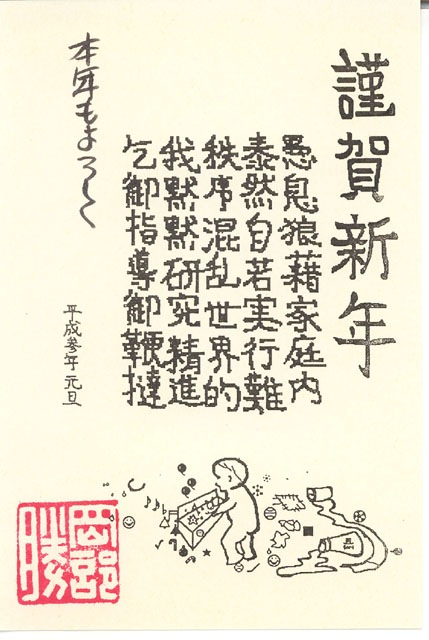 謹賀新年
愚息狼藉家庭内
泰然自若実行難
秩序混乱世界的
我黙黙研究精進
乞御指導御鞭撻
本年もよろしく
平成参年 元旦
岡部
勝